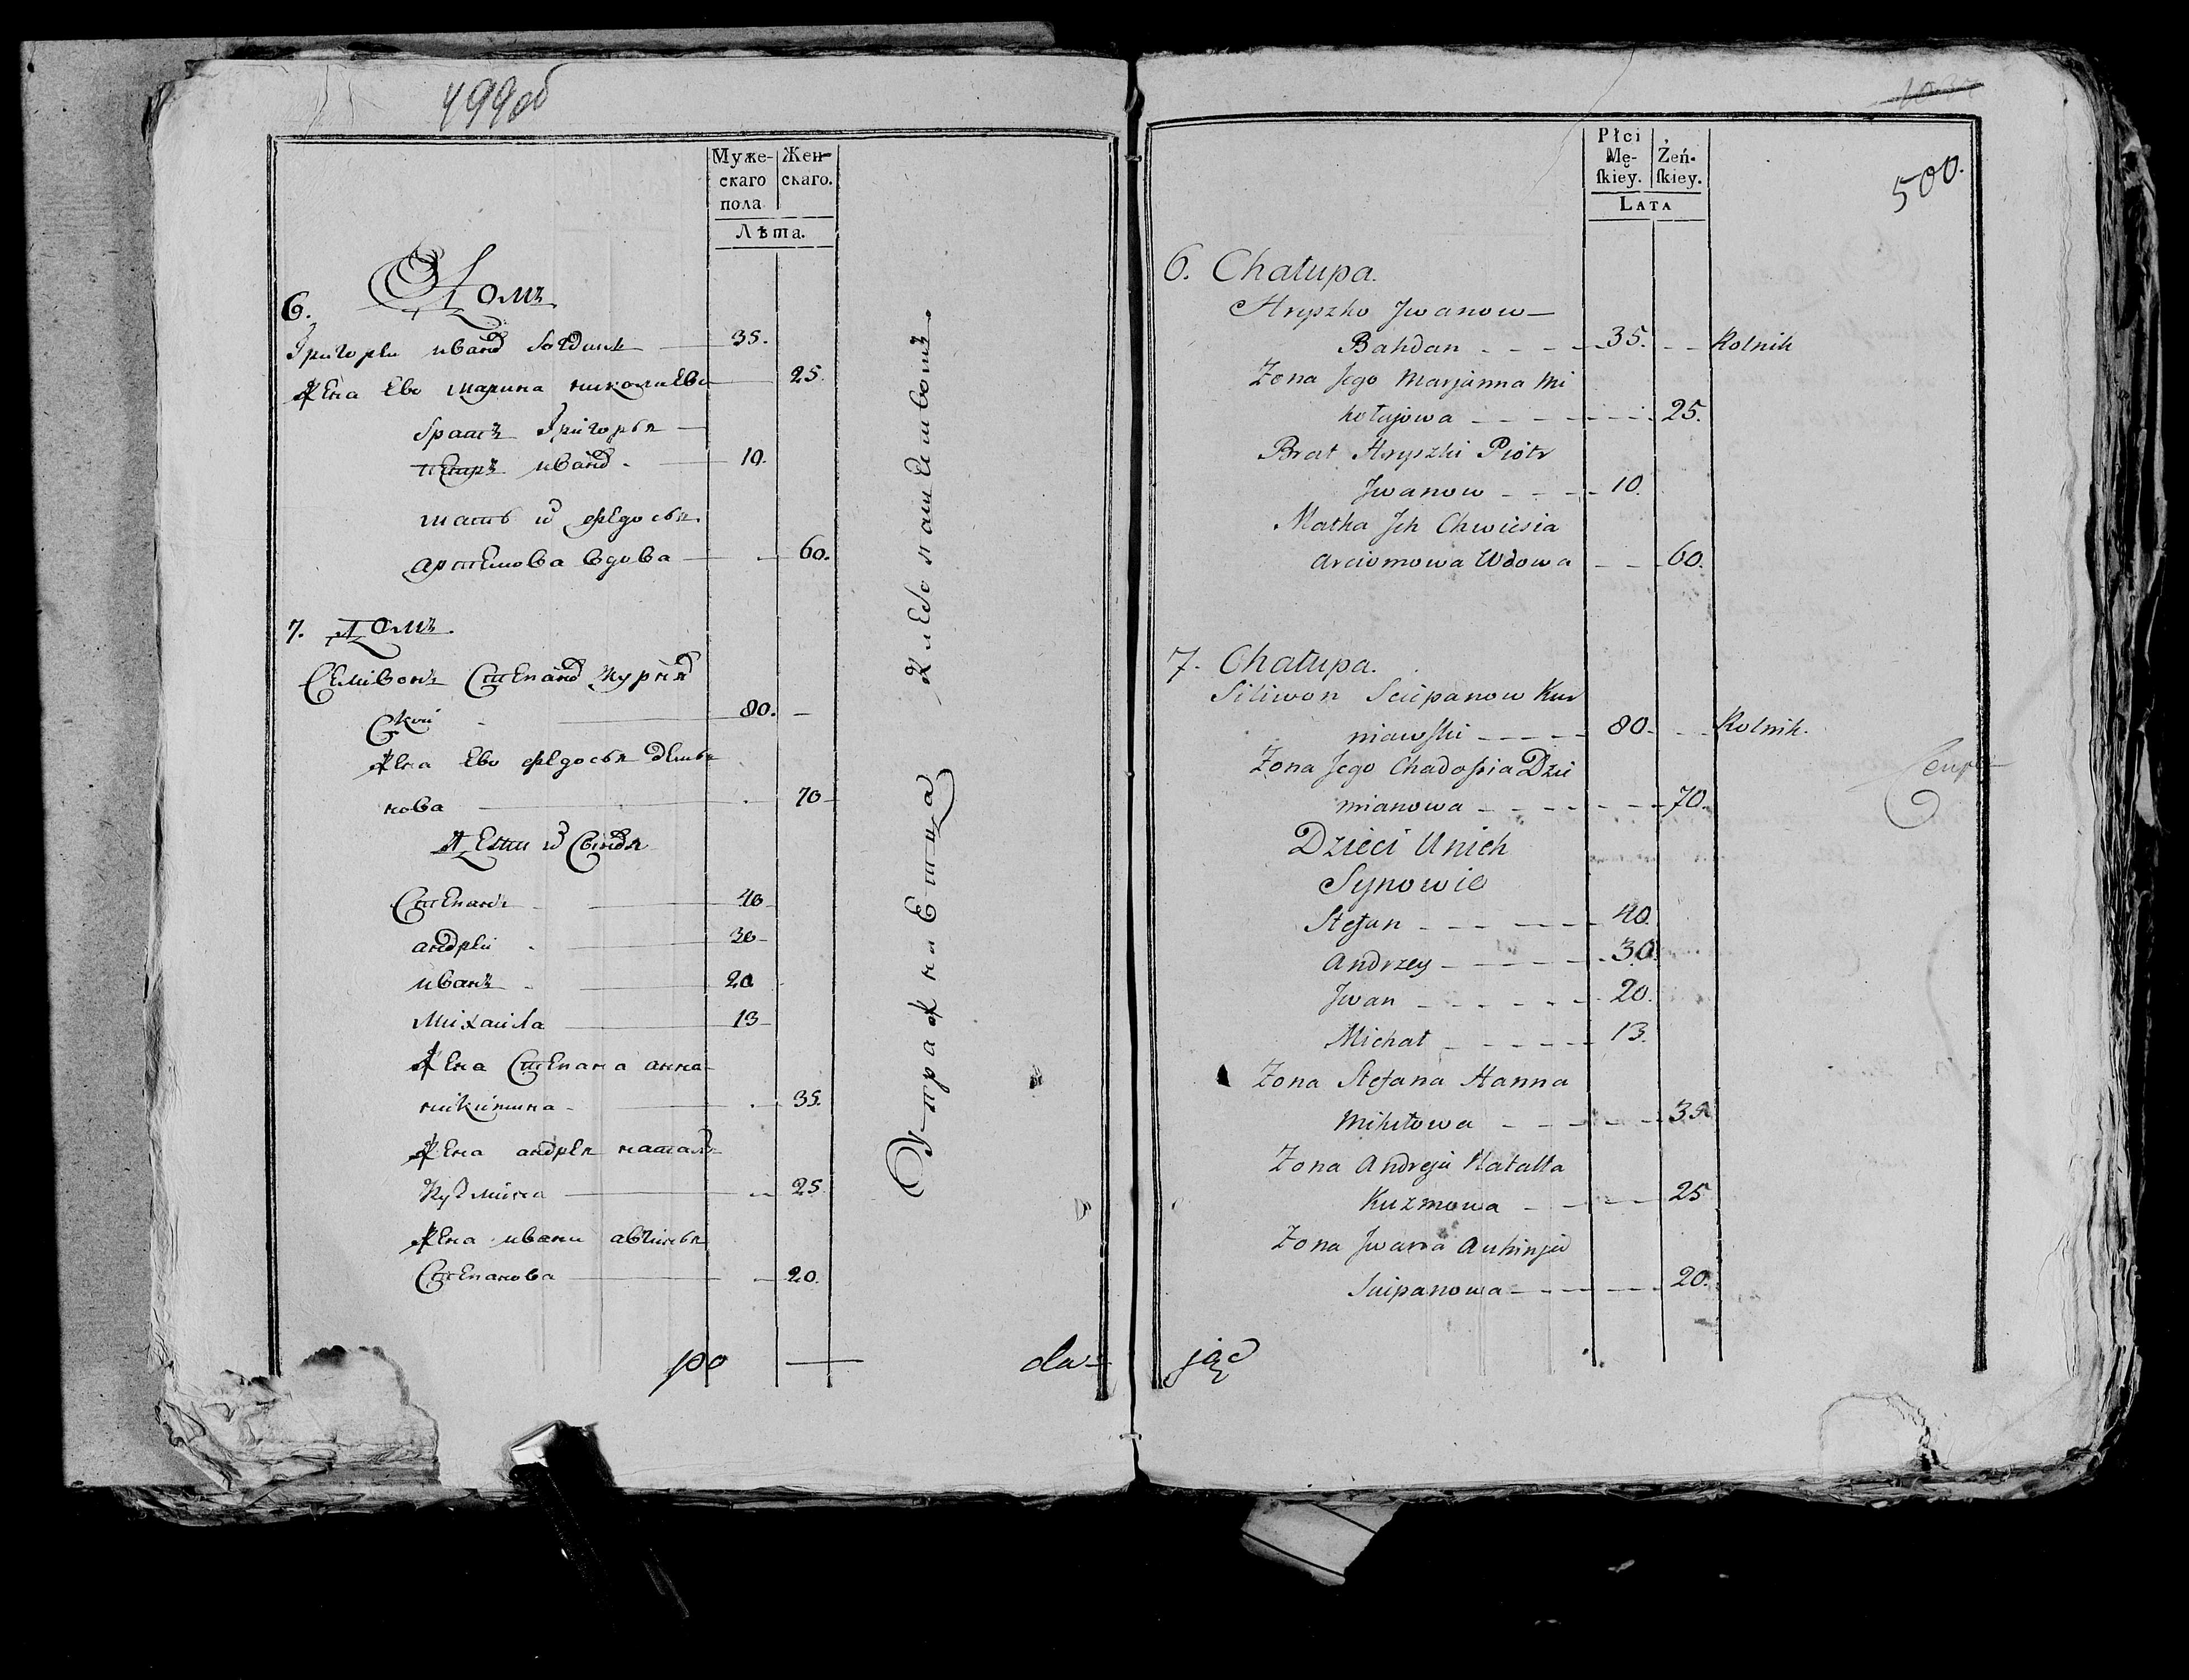 499об
Муже-
скаго
пола
Жен-
скаго.
Лѣта.
6. Домъ
Григорѣи иванов богданъ 35.
Жена Ево марина николаева 25
братъ григорья
петръ иванов. 10.
мать их федосья
артемова вдова 60.
7. Домъ
Семивонъ Степанов Курняв
Ской 80.
Жена Ево федосья демья
нова 70
Дети их Сынов я
Степанъ 40
андрей 30
иванъ 20
Михаила 13
Жена Степана анна
никитина 35.
Жена андрея наталья
Кузмина 25
Жена ивана авгинья
Степанова 20.
Упражнается Хлебопашеством.
po da-
1032
500.
Płci
Mę-
ſkiey.
Zeń-
ſkiey.
LATA
6. Chałupa.
Hryszko Jwanow
Bahdan 35. Rolnik
Zona Jego Marjanna Mi
kołajowa 25.
Brat Hryszki Piotr
Jwanow 10.
Matka Jch Chwiesia
Arciomowa Wdowa 60.
7. Chałupa.
Siliwon Sciepanow Kur
niawſki 80. Rolnik.
Zona Jego Chadoſia Dzie
mianowa 70.
Dzieci Unich
Synowie
Stefan 40.
Andrzey 30.
Jwan 20.
Michał 13.
Zona Stefana Hanna
Mikitowa 35
Zona Andreja Natalla
Kuzmowa 25
Zona Jwana Auhinja
Sciepanowa 20.
jąc